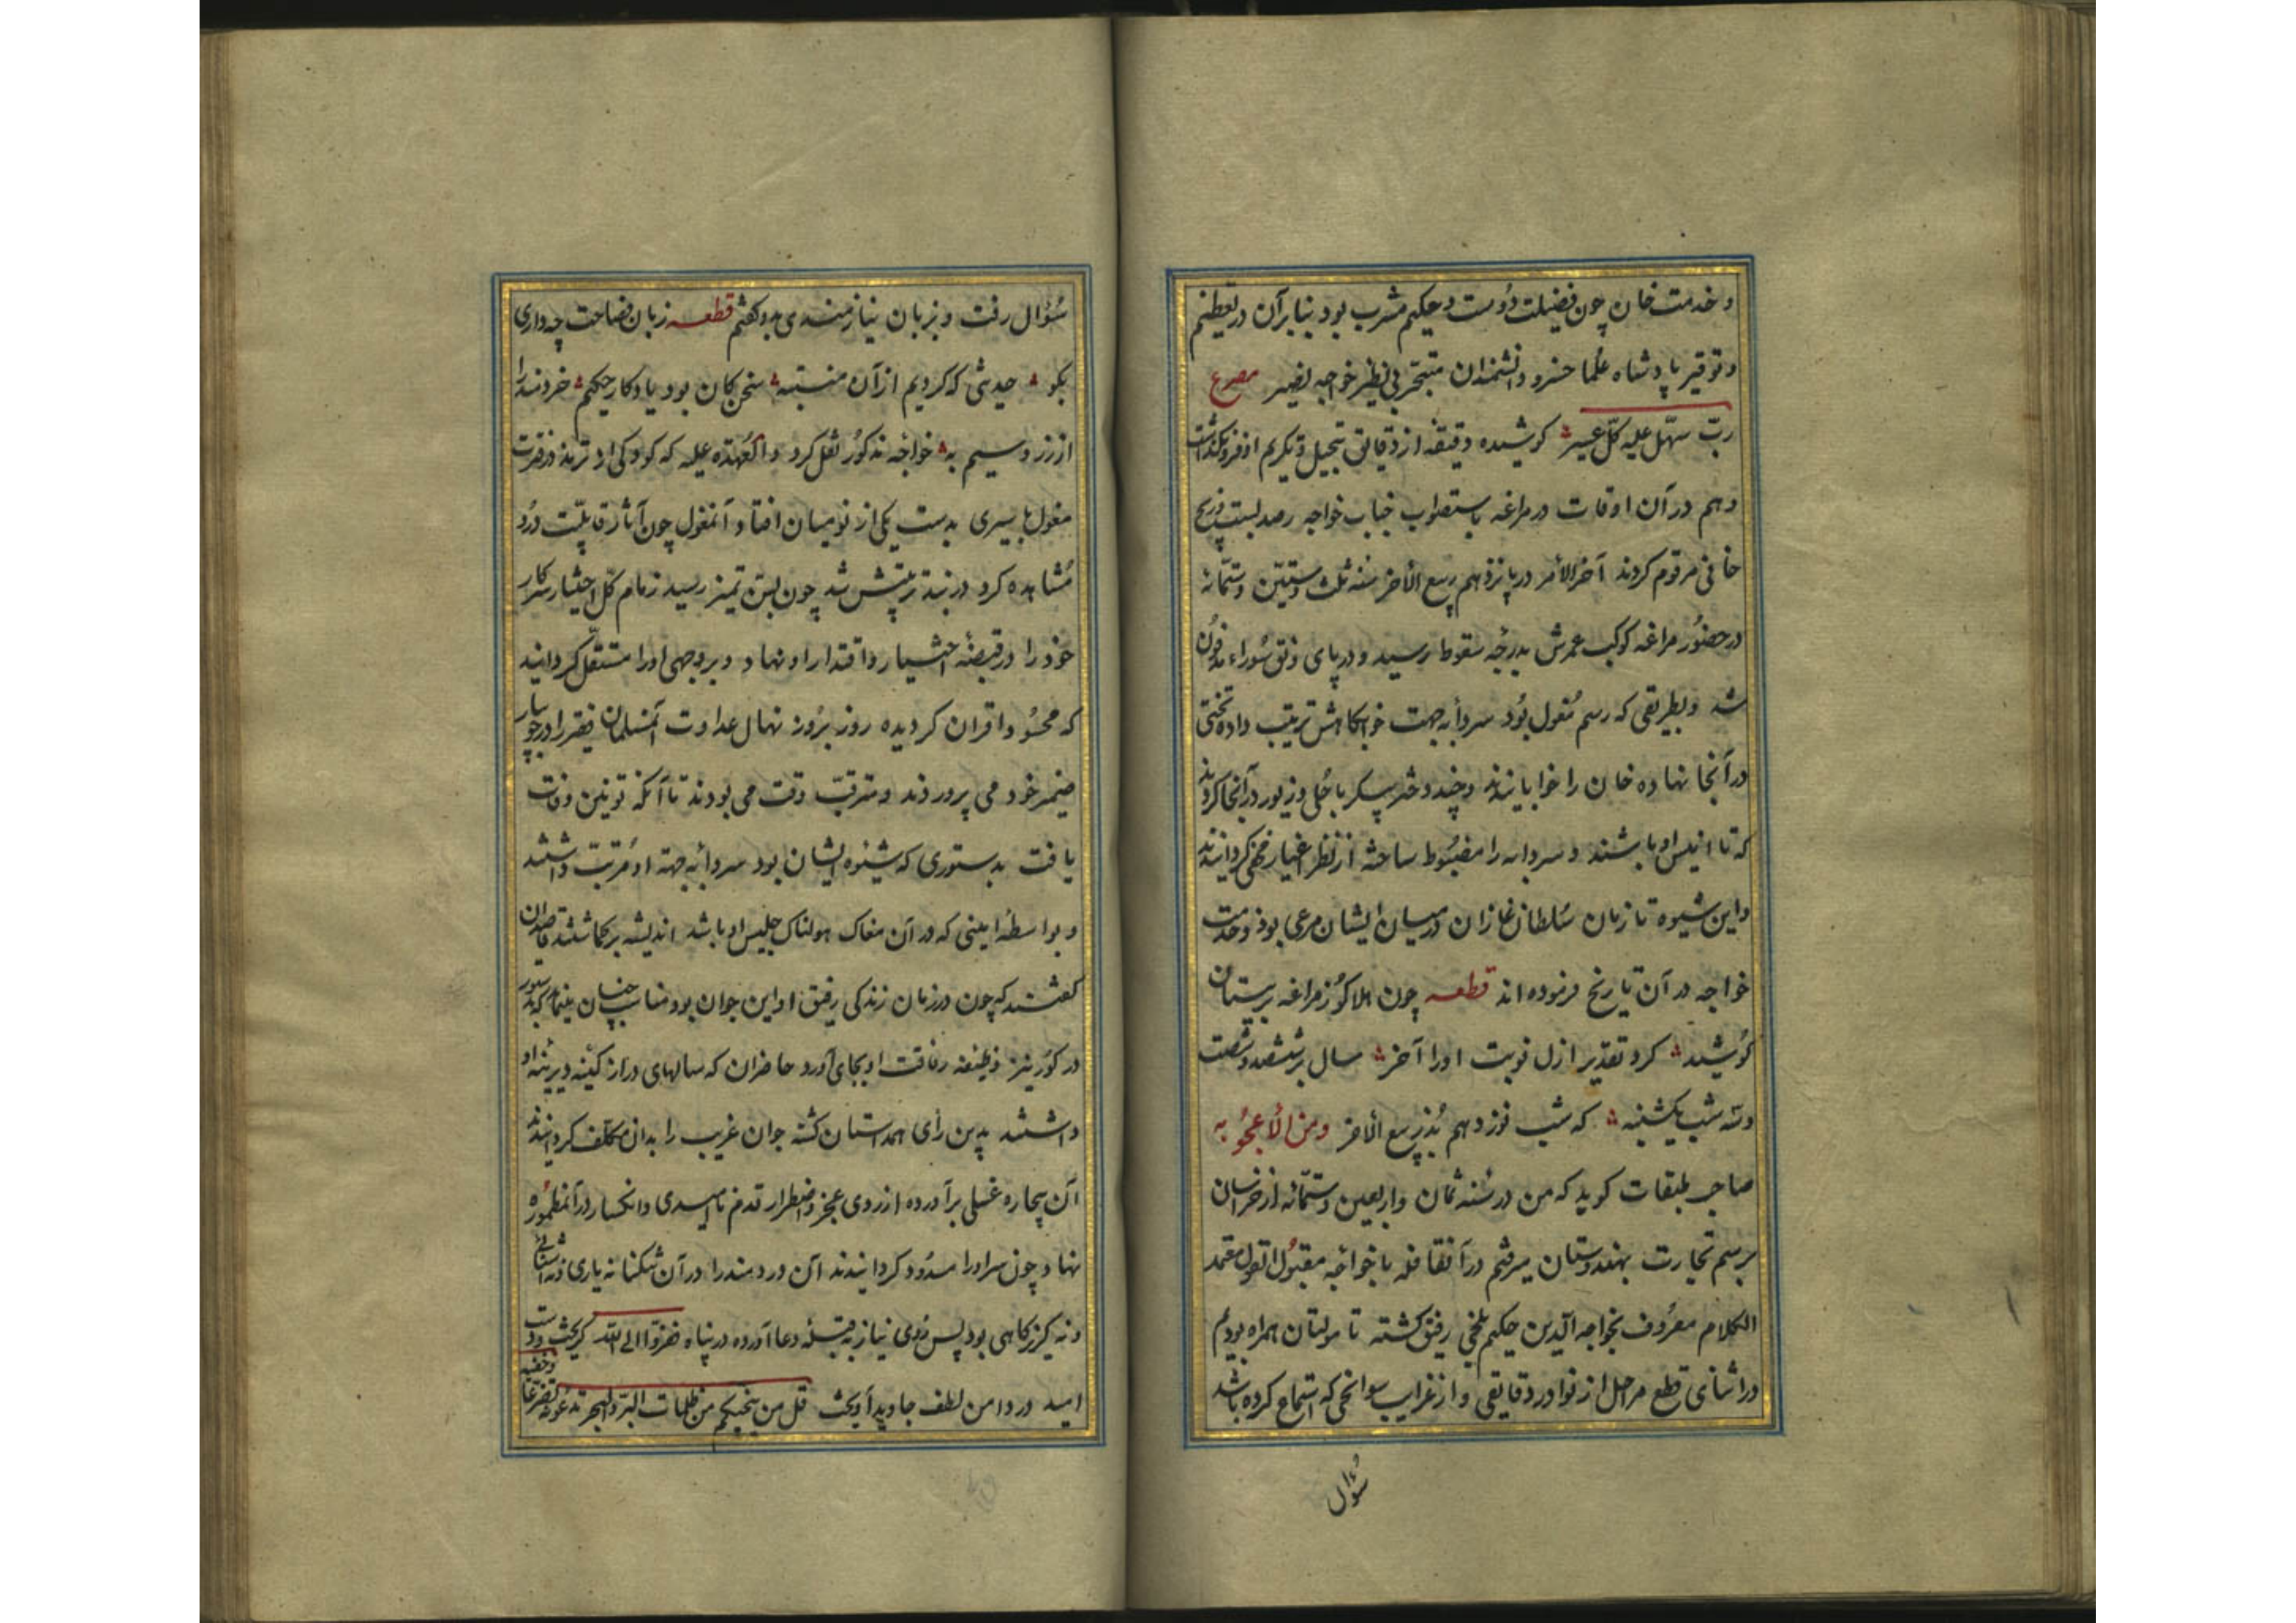 و خدمت خان چون فضیلت دوست و حکیم مشرب بود بنابر آن در تعظیم
و توقیر پادشاه علما خسرو دانشمندان متبحر بی نظیر خواجه نصیر مصرع
ربّ سهّل علیه کلّ عسیر کوشیده دقیقه از دقایق تبجیل و تکریم او فرو نکذاشت
و هم در آن اوقات در مراغه باستصواب جناب خواجه رصد بست و زیج
خانی مرقوم کردند آخر الأمر در پانزدهم ربیع الأخر سنه ثلث و ستّین و ستّمائه
در حضور مراغه کوکب عمرش بدرجه سقوط رسید و در پای مدفون
شد و بطریقی که رسم مغول بود سردابه جهت خوابکاهش ترتیب داده تختی
در آنجا نهاده خان را خوابانیدند و چند دختر پیکر با حلی و زیور در آنجا کردند
که تا انیس او باشند و سردابه را مضبوط ساخته از نظر اغیار مخفی کردانیدند
و این شیوه تا زمان سلطان غازان در میان ایشان مرعی بود و خدمت
خواجه در آن تاریخ فرموده اند قطعه چون هلاکو ز مراغه بزمستان
کوشید کرد تقدیر ازل نوبت او را آخر سال بر ششصد و شصت
و سه شب یکشنبه که شب نوزدهم بُد ز ربیع الأخر و من الأعجوبه
صاحب طبقات کوید که من در سنه ثمان و اربعین و ستّمائه از خراسان
برسم تجارت بهندوستان میرفتم در آن قافله با خواجه مقبول القول معتمد
الکلام معروف بخواجه الدین حکیم بلخی رفیق کشته تا مولتان همراه بودیم
در اثنای قطع مراحل از نوادر دقایقی و از غرایب سوانحی که استماع کرده باشد
سؤال
سؤال رفت و بزبان نیازمندی بدو کفتم قطعه زبان فصاحت چه داری
بکو حدیثی که کردیم از آن منتبه سخن کان بود یادکار حکیم خردمند را
از زر و سیم به خواجه مذکور نقل کرد و العهدة علیه که کودکی از ترمذ در فترت
مغول باسیری بدست یکی از نوینان افتاد و آن مغول چون آثار قابلیّت درو
مشاهده کرد در بند تربیتش شد چون بسن تمیز رسید زمام کلّ اختیار سرکار
خود را در قبضۀ اختیار و اقتدار او نهاد و بر وجهی او را مستقلّ کردانید
که محسود اقران کردیده روز بروز نهال عداوت آن مسلمان فقیر را در جویبار
ضمیر خود می پروردند و مترقبّ وقت می بودند تا آنکه نوئین وفات
یافت بدستوری که شیوه ایشان بود سردابه جهة او مرتب داشتند
و بواسطه امینی که در آن مغاک هولناک جلیس او باشد اندیشه بر کماشتند قاصدان
کفتند که چون در زمان زندکی رفیق او این جوان بود مناسب چنان مینماید که بدستور
در کور نیز وظیفه رفاقت او بجای آورد حاضران که سالهای دراز کینه دیرینه او
داشتند بدین رای همداستان کشته جوان غریب را بدان مکلّف کردانیدند
آن بیچاره غسلی برآورده از روی عجز و اضطرار قدم ناامیدی و انکسار در آن مطموره
نهاد و چون سر او را مسدود کردانیدند آن دردمند را در آن تنکنا نه یاری و نه آشنائی
و نه کریزکاهی بود پس روی نیاز بقبلۀ دعا آورده در پناه ففرّوا الی الله کریخت و دست
امید در دامن لطف جاوید آویخت قل من ینجیکم من ظلمات البرّ و البحر تدعونه تضرعا و خفیه